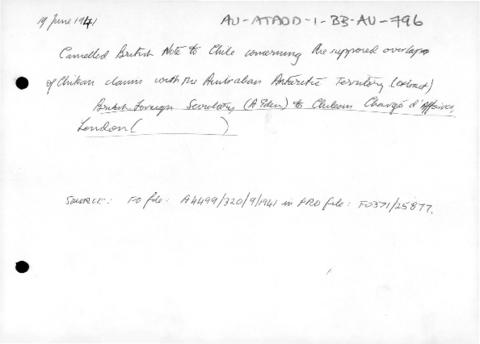 19 June 1941
AU-ATADD-1-BB-AU-796
Cancelled British Note to Chile concerning the supposed overlap
of Chilean claims with the Australian Antarctic Territory (extract)
British Foreign Secretary (A Eden) to Chilean Chargé d'Affaires,
London ( )
SOURCE: FO file: A4499/320/9/1941 in PRO file: FO371/25877.